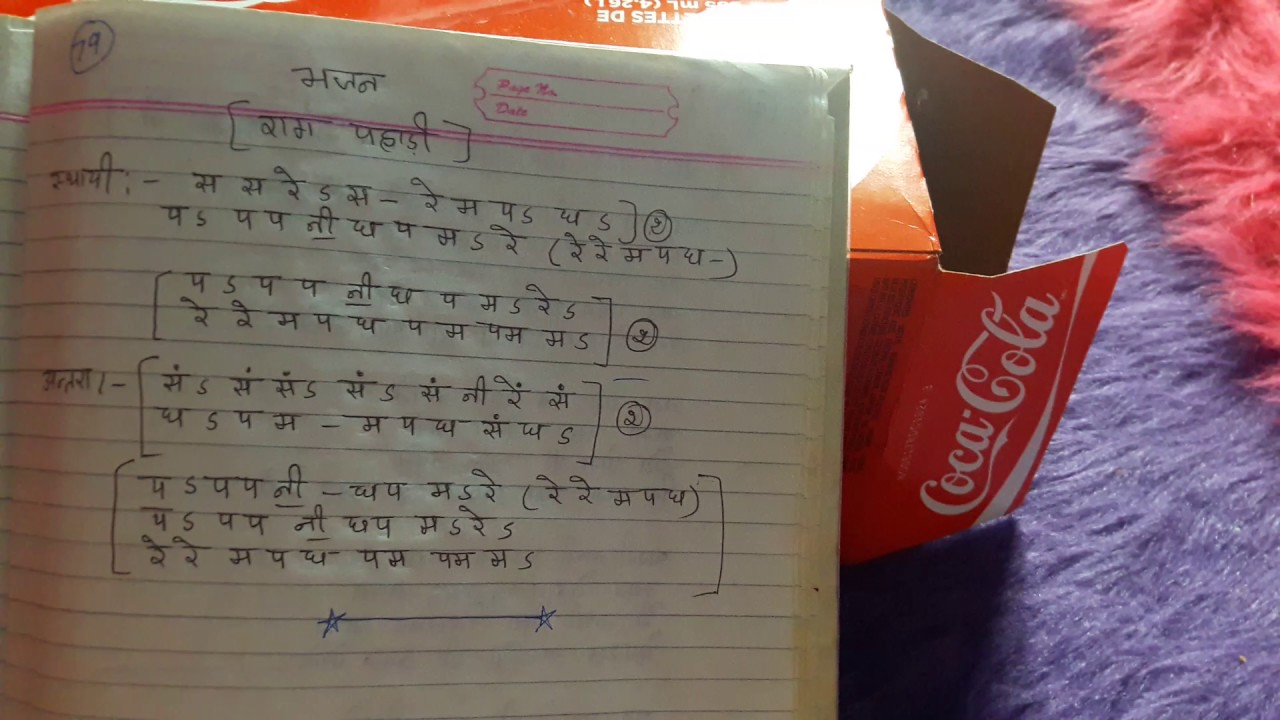 79
भजन
Page No.
Date
[ राग पहाड़ी ]
स्थायी:- स स रे ऽ स - रे म प ऽ ध ऽ ] २
प ऽ प प नी॒ ध प म ऽ रे ( रे रे म प ध - )
[ प ऽ प प नी॒ ध प म ऽ रे ऽ
रे रे म प ध प म पम म ऽ ] २
अन्तरा:- [ सं ऽ सं सं ऽ सं ऽ सं नी रें सं
ध ऽ प म - म प ध सं ध ऽ ] २
[ प ऽ प प नी॒ - ध प म ऽ रे ( रे रे म प ध )
प ऽ प प नी॒ ध प म ऽ रे ऽ
रे रे म प ध पम पम म ऽ ]
Coca-Cola